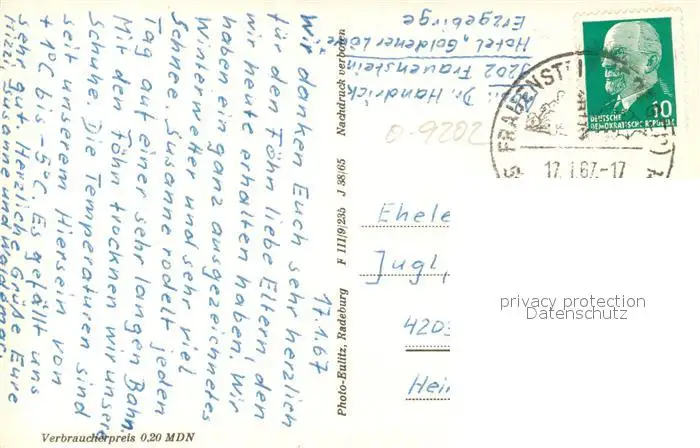 17.1.67
Wir danken Euch sehr herzlich
für den Föhn liebe Eltern, den
wir heute erhalten haben. Wir
haben ein ganz ausgezeichnetes
Winterwetter und sehr viel
Schnee. Susanne rodelt jeden
Tag auf einer sehr langen Bahn.
Mit dem Föhn trocknen wir unsere
Schuhe. Die Temperaturen sind
seit unserem Hiersein von
+1°C bis -5°C. Es gefällt uns
sehr gut. Herzliche Grüße Eure
Susanne und Waldemar
Verbraucherpreis 0,20 MDN
Photo-Eulitz, Radeburg F III/9/235 J 38/65 Nachdruck verboten
Dr. Handrick
9202 Frauenstein
Hotel "Goldener Löwe"
Erzgebirge
2026-0
FRAUENST
17.1.67-17
10
DEUTSCHE
DEMOKRATISCHE REPUBLIK
Ehele
Jugl,
420
Hei
privacy protection
Datenschutz